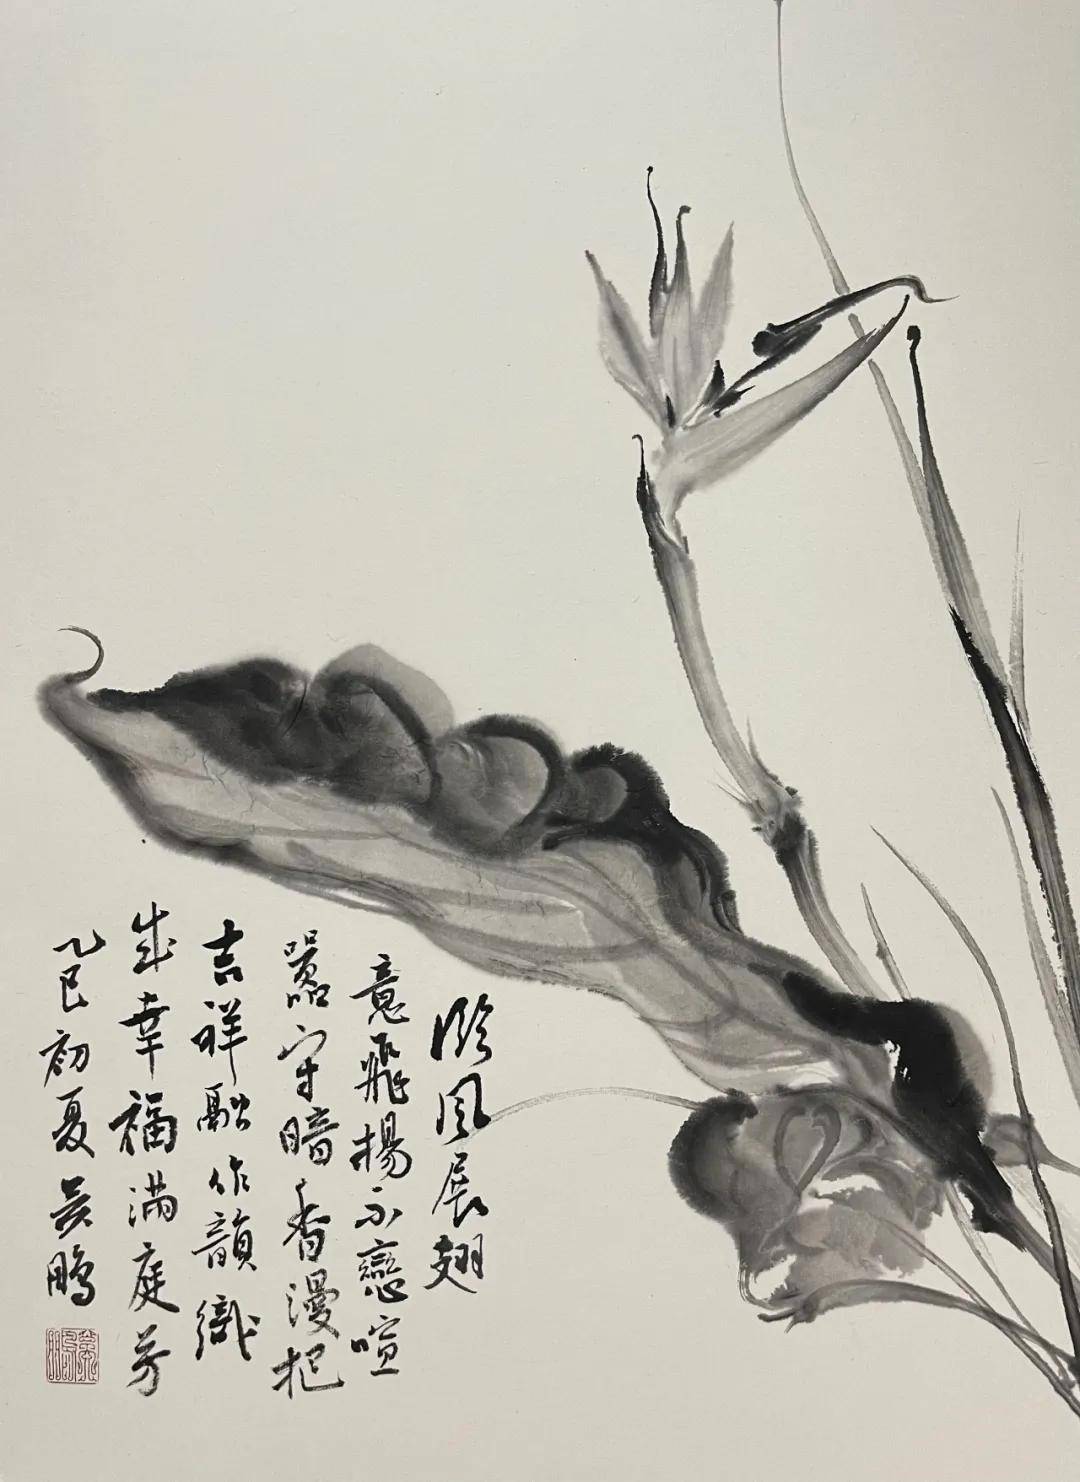 临风展翅
意飞扬不恋喧
嚣守暗香漫把
吉祥融作韵织
成幸福满庭芳
乙巳初夏吴鹏